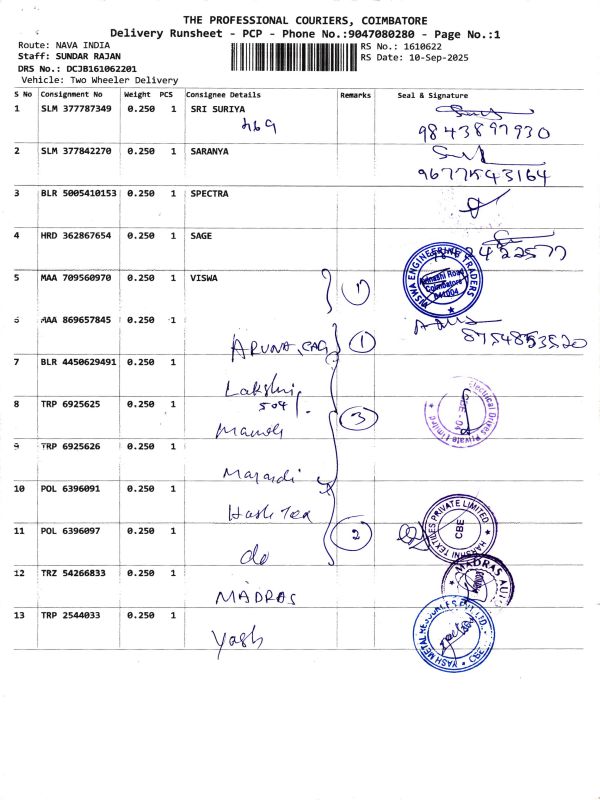 THE PROFESSIONAL COURIERS, COIMBATORE
Delivery Runsheet - PCP - Phone No.:9047080280 - Page No.:1
Route: NAVA INDIA
Staff: SUNDAR RAJAN
DRS No.: DCJB161062201
Vehicle: Two Wheeler Delivery
RS No.: 1610622
RS Date: 10-Sep-2025
S No Consignment No Weight PCS Consignee Details Remarks Seal & Signature
1 SLM 377787349 0.250 1 SRI SURIYA
9843897930
2 SLM 377842270 0.250 1 SARANYA
9677543164
3 BLR 5005410153 0.250 1 SPECTRA
4 HRD 362867654 0.250 1 SAGE
5 MAA 709560970 0.250 1 VISWA 1
VISWA ENGINEERING TRADERS
Avinashi Road
Coimbatore
641004
6 MAA 869657845 0.250 1
ARUNA, CAG 1
8754853520
7 BLR 4450629491 0.250 1
Lakshmi
504/.
8 TRP 6925625 0.250 1 3
Electrical Drives Private Limited
CBE - 04
Manoh
9 TRP 6925626 0.250 1
10 POL 6396091 0.250 1
Hash Tex
11 POL 6396097 0.250 1 2
HARSHNI TEXTILES PRIVATE LIMITED
CBE
do
12 TRZ 54266833 0.250 1
MADRAS
MADRAS AUTO
13 TRP 2544033 0.250 1
Yash
YASH METAL RESOURCES PVT LTD.
CBE